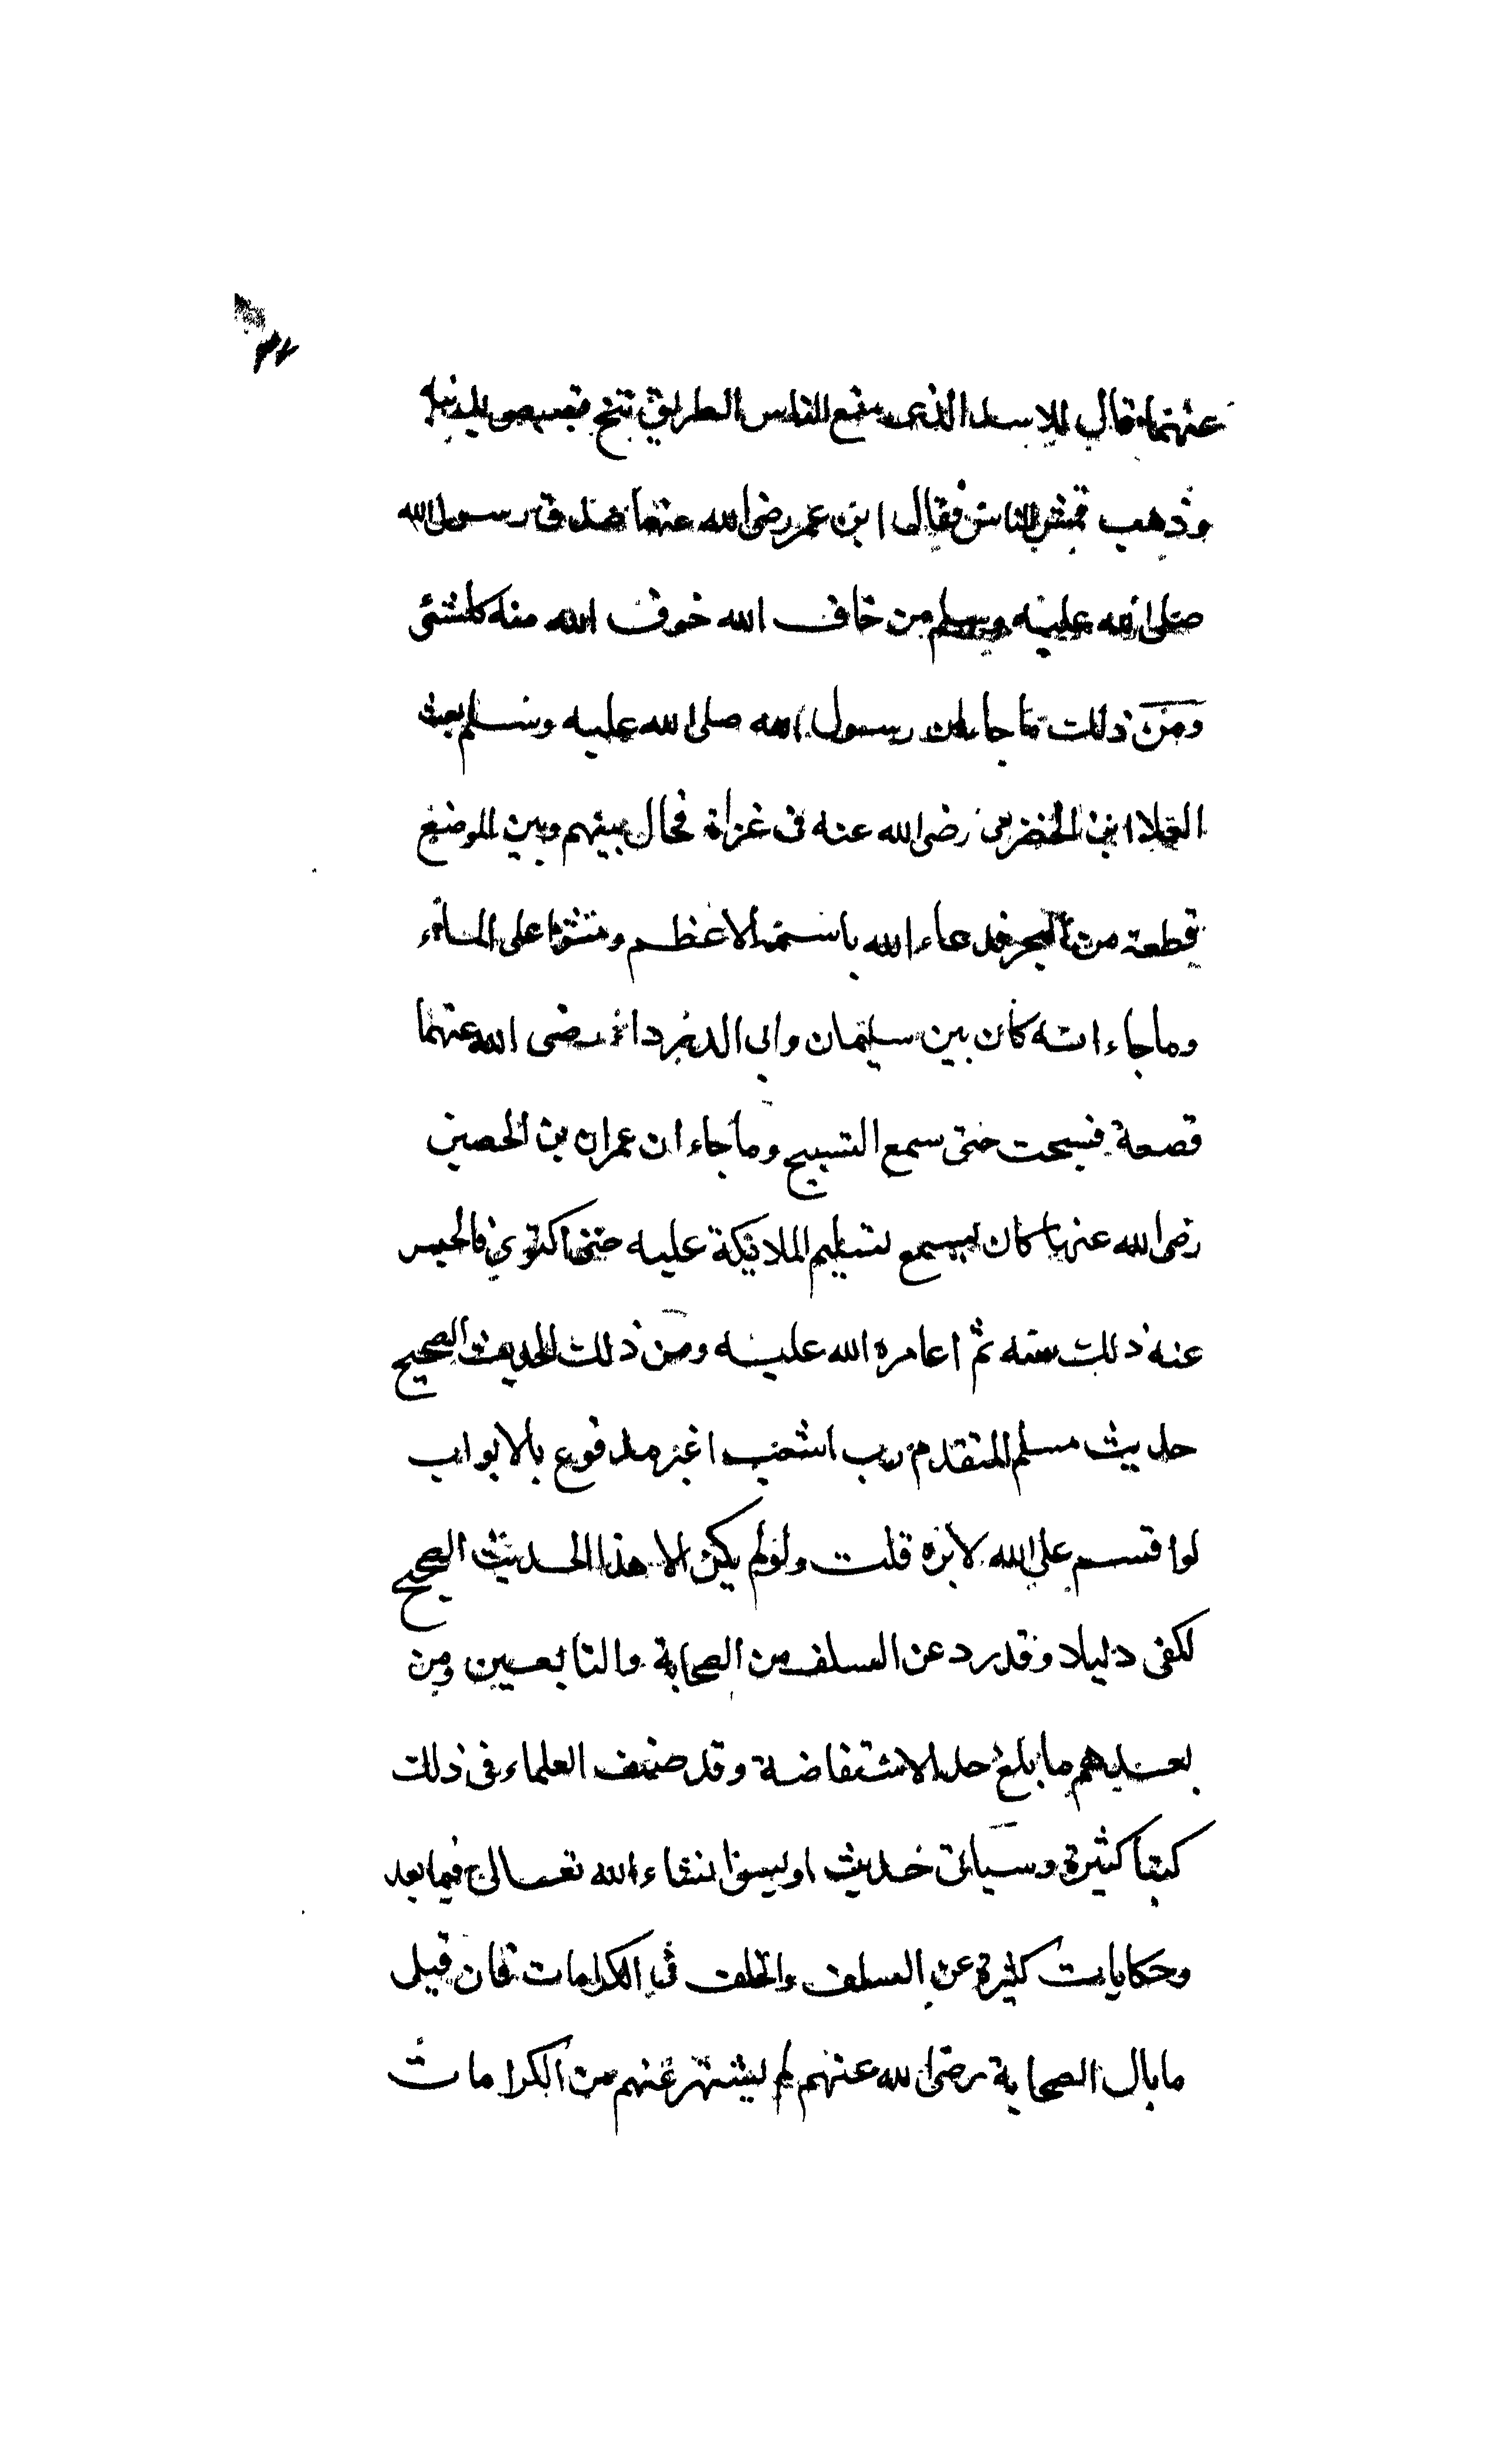 عنهما قال للاسد الذى منع الناس الطريق تنح فبصبص بذنبه
وذهب فمشى الناس فقال ابن عمر رضى الله عنهما صدق رسول الله
صلى الله عليه وسلم من خاف الله خوف الله منه كل شئ
ومن ذلك ما جاء ان رسول الله صلى الله عليه وسلم بعث
العلا ابن الحضرمى رضى الله عنه فى غزاة فحال بينهم وبين الموضع
قطعة من البحر فدعاء الله باسمه الاعظم ومشوا على الماء
وما جاء انه كان بين سليمان وابى الدرداء رضى الله عنهما
قصعة فسبحت حتى سمع التسبيح وما جاء ان عمران بن الحصين
رضى الله عنهما كان يسمع تسليم الملائكة عليه حتى اكتوى فانحبس
عنه ذلك سنه ثم اعامره الله عليه ومن ذلك الحديث الصحيح
حديث مسلم المتقدم رب اشعث اغبر مدفوع بالابواب
لو اقسم على الله لابره قلت ولو لم يكن الا هذا الحديث الصحيح
لكفى دليلا وقد رد عن السلف من الصحابة والتابعين ومن
بعدهم ما بلغ حد الاستفاضة وقد صنف العلماء فى ذلك
كتبا كثيرة وسياتى حديث اويس انشاء الله تعالى فيما بعد
وحكايات كثيرة عن السلف والخلف فى الكرامات فان قيل
ما بال الصحابة رضى الله عنهم لم يشتهر عنهم من الكرامات